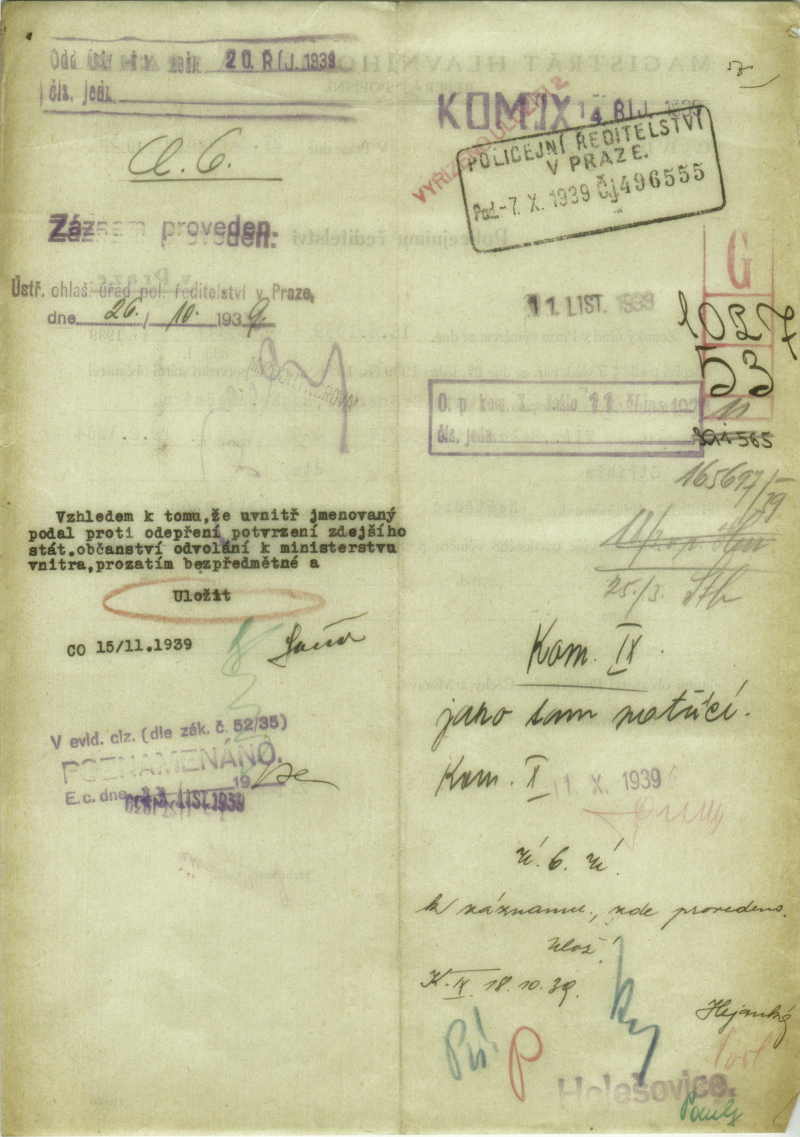 20. ŘÍJ. 1939
čís. jedn.
Záznam proveden.
Ústř. ohlaš. úřad pol. ředitelství v Praze,
dne 26. / 10. 1939.
Vzhledem k tomu,že uvnitř jmenovaný
podal proti odepření potvrzení zdejšího
stát.občanství odvolání k ministerstvu
vnitra,prozatím bezpředmětné a
Uložit
CO 15/11.1939
V evid. ciz. (dle zák. č. 52/35)
POZNAMENÁNO.
E. c. dne 19
LIST. 1939
KOM. IX 14 ŘÍJ. 1939
POLICEJNÍ ŘEDITELSTVÍ
V PRAZE.
Pod -7. X. 1939 Čj 496555
G
11. LIST. 1939
1027
53
11
O. p. kom. X. došlo 11
čís. jedn.
165697/39
25./3.
Kom. IX.
jako tam patřící.
Kom. X 11 X. 1939
k záznamu, zde provedeno.
Ulož!
K. IX 18. 10. 39.
P
Holešovice.